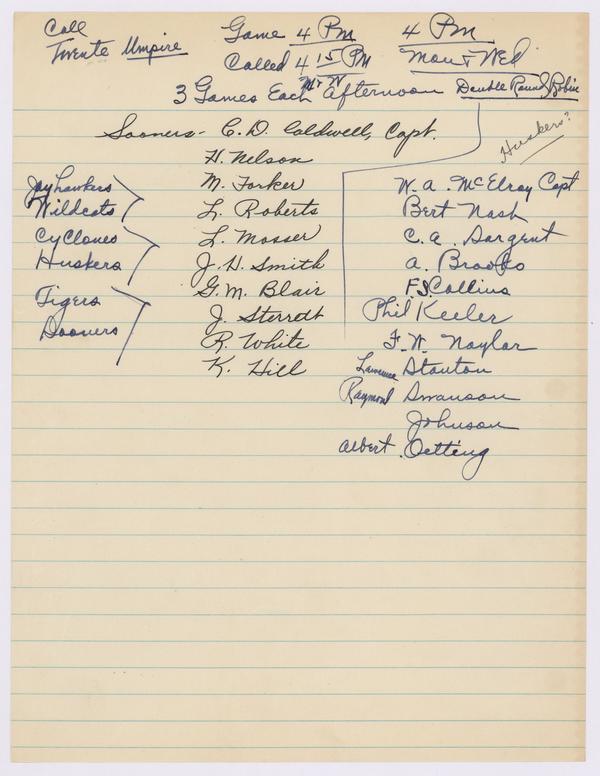 Call
Twente Umpire
Game 4 PM
Called 4 15 PM
M + W
4 PM
Mon + Wed
3 Games Each Afternoon Double Round Robin
Huskers?
Sooners - C. D. Caldwell, Capt.
H. Nelson
M. Forker
L. Roberts
L. Mosser
J. H. Smith
G. M. Blair
J. Sterrett
R. White
K. Hill
Jayhawkers
Wildcats
Cyclones
Huskers
Tigers
Sooners
W. A. McElroy Capt
Bert Nash
C. A. Sargent
A. Brooks
F. S. Collins
Phil Keeler
F. W. Naylor
Lawrence Stanton
Raymond Swanson
Johnson
Albert Oetting